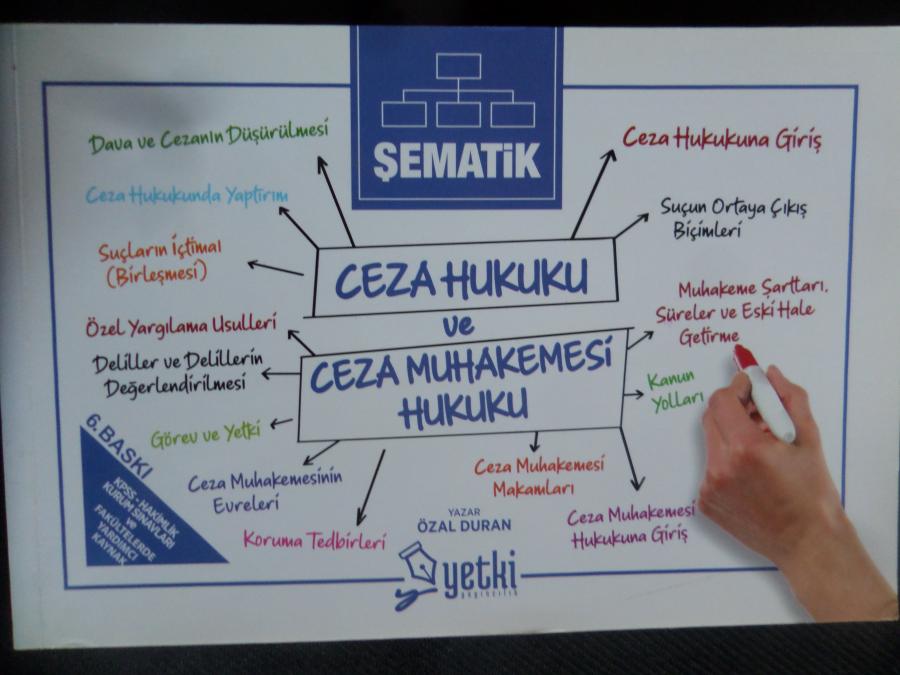 ŞEMATİK
Dava ve Cezanın Düşürülmesi
Ceza Hukukunda Yaptırım
Suçların İçtimaı
(Birleşmesi)
Ceza Hukukuna Giriş
Suçun Ortaya Çıkış
Biçimleri
CEZA HUKUKU
ve
CEZA MUHAKEMESİ
HUKUKU
Özel Yargılama Usulleri
Deliller ve Delillerin
Değerlendirilmesi
Görev ve Yetki
Ceza Muhakemesinin
Evreleri
Koruma Tedbirleri
Muhakeme Şartları,
Süreler ve Eski Hale
Getirme
Kanun
Yolları
Ceza Muhakemesi
Makamları
Ceza Muhakemesi
Hukukuna Giriş
6. BASKI
KPSS - HAKİMLİK
KURUM SINAVLARI
ve
FAKÜLTELERDE
YARDIMCI
KAYNAK
YAZAR
ÖZAL DURAN
yetki
yayıncılık